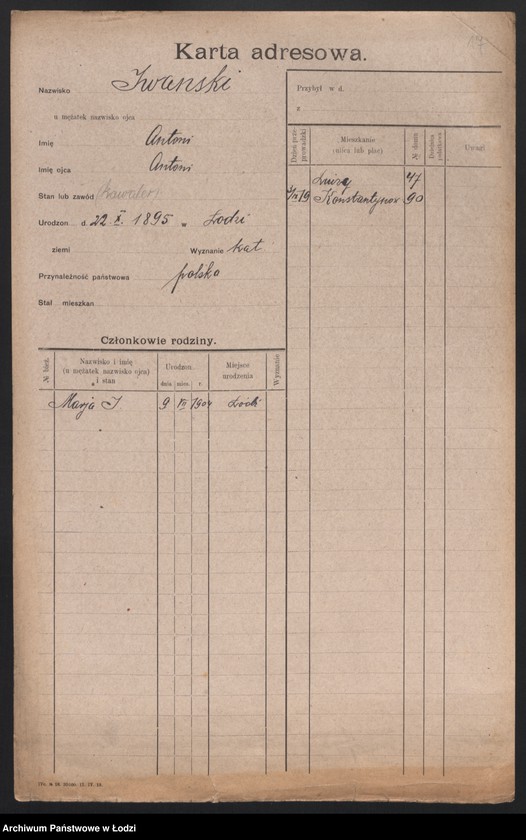 19
Karta adresowa.
Nazwisko Iwanski
u mężatek nazwisko ojca
Imię Antoni
Imię ojca Antoni
Stan lub zawód kawaler
Urodzon... d. 22. X. 1895 w Łodzi
ziemi Wyznanie kat
Przynależność państwowa polska
Stał... mieszkan
Członkowie rodziny.
№ bież. Nazwisko i imię (u mężatek nazwisko ojca) i stan Urodzon... dnia mies. r. Miejsce urodzenia Wyznanie
Marja I. 9 VII 1904 Łódź
Przybył w d.
z
Dzień przeprowadzki Mieszkanie (ulica lub plac) № domu Uwagi
Luizą 47
19 Konstantynow. 90
Archiwum Państwowe w Łodzi